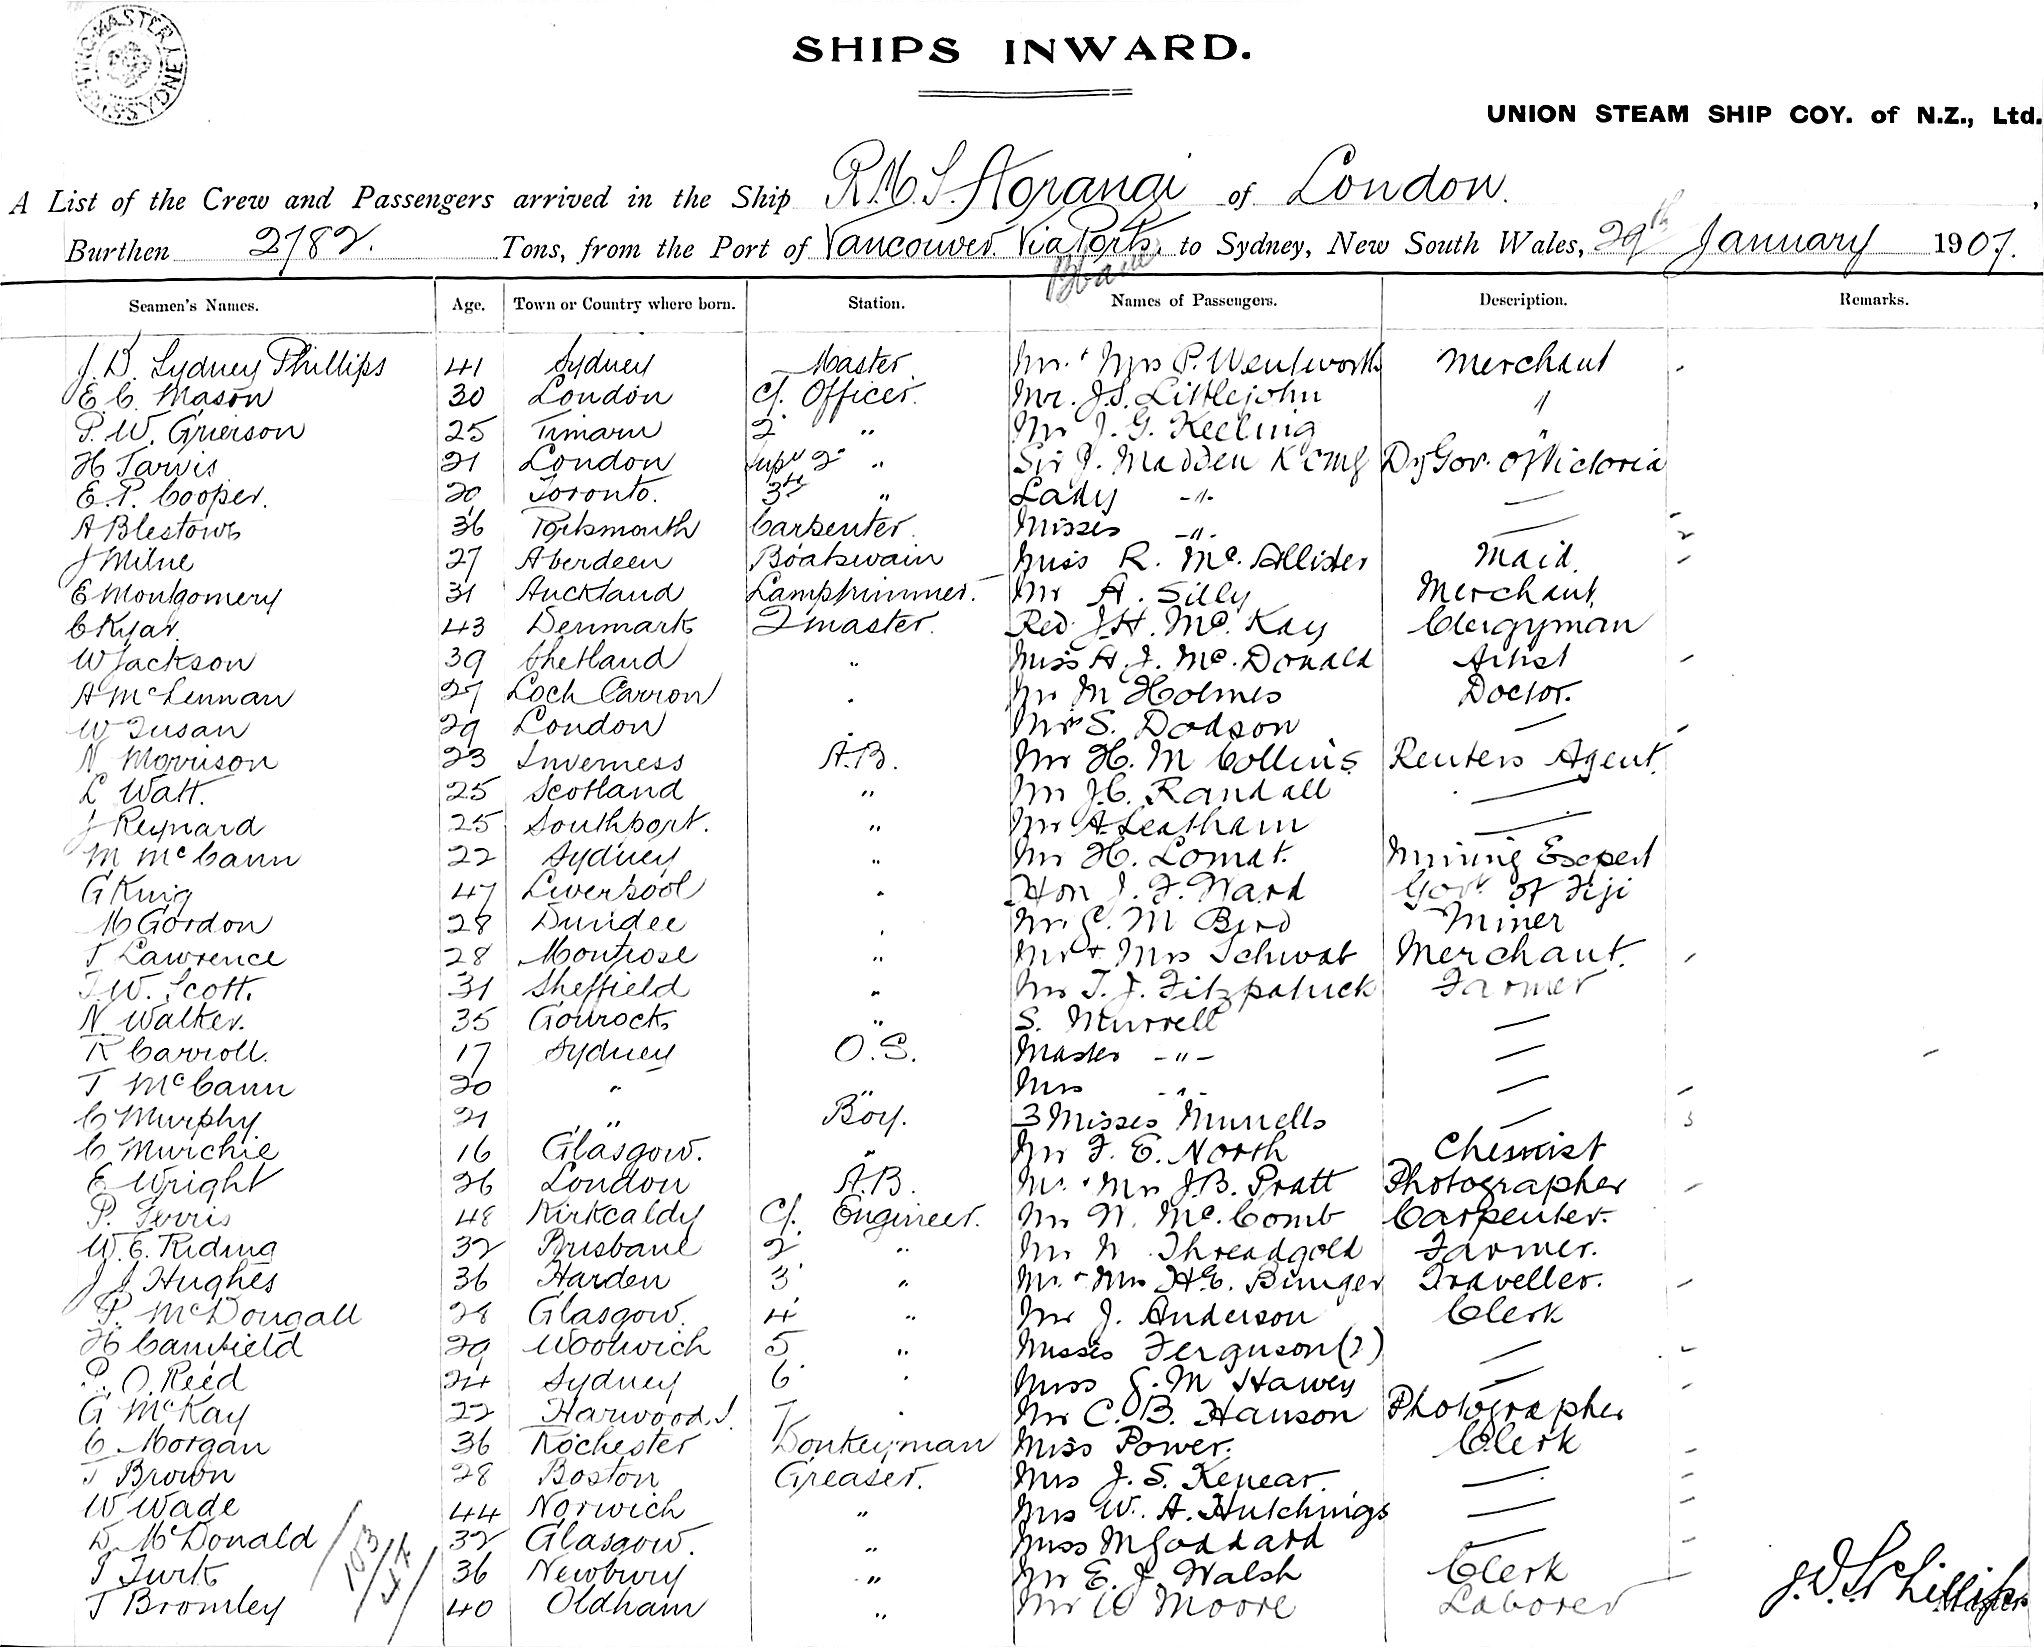 SHIPPING MASTER SYDNEY
SHIPS INWARD.
UNION STEAM SHIP COY. of N.Z., Ltd.
A List of the Crew and Passengers arrived in the Ship R.M.S. Aorangi of London.
Burthen 2782. Tons, from the Port of Vancouver Via Ports, to Sydney, New South Wales, 29th January 1907.
Seamen's Names. Age. Town or Country where born. Station. Names of Passengers. Description. Remarks.
J. D. Sydney Phillips 41 Sydney Master. Mr. & Mrs P. Wentworth Merchant
E. C. Mason 30 London Cf. Officer. Mr. J.S. Littlejohn "
P. W. Grierson 25 Timaru 2 " Mr J. G. Keeling "
H Jarvis 21 London Supy 2 " Sir J. Madden KCMG Dy Gov. of Victoria
E. P. Cooper. 20 Toronto. 3rd " Lady -"- —
A Blestowe 36 Portsmouth Carpenter. Misses -"- — 2
J Milne 27 Aberdeen Boatswain Miss R. Mc. Allister Maid.
E Montgomery 31 Auckland Lamptrimmer. Mr A. Silly Merchant.
C Kjar. 43 Denmark Qmaster. Rev. J.H. Mc. Kay Clergyman
W Jackson 39 Shetland " Miss A. J. Mc. Donald Artist
A McLennan 27 Loch Carron " Mr M Holmes Doctor.
W Susan 29 London " Mrs S. Dodson —
N Morrison 23 Inverness A.B. Mr H. M Collins Reuters Agent.
L Watt. 25 Scotland " Mr J.C. Randall —
J Reynard 25 Southport. " Mr A Leatham —
M McCann 22 Sydney " Mr H. Lomat. Mining Expert
G King 47 Liverpool " Hon J. F. Ward Govt of Fiji
M Gordon 28 Dundee " Mr. C. M Bird Miner
T Lawrence 28 Montrose " Mr & Mrs Schwab Merchant.
J.W. Scott. 31 Sheffield " Mr T. J. Fitzpatrick Farmer
N Walker. 35 Gourock " S. Murrell —
R Carroll. 17 Sydney O.S. Master -"- —
T McCann 20 " " Mrs -"- —
C Murphy 21 " Boy. 3 Misses Murrells — 3
C Murchie 16 Glasgow. " Mr F. E. North Chemist
E Wright 26 London A.B. Mr. & Mrs J.B. Pratt Photographer
P. Ferris 48 Kirkcaldy Cf. Engineer. Mr W. Mc. Comb Carpenter.
W. E. Riding 32 Brisbane 2 " Mr W Threadgold Farmer.
J J Hughes 36 Harden 3 " Mr. & Mrs H.E. Bunger Traveller.
P. McDougall 28 Glasgow. 4 " Mr J. Anderson Clerk
H Camfield 29 Woolwich 5 " Misses Ferguson (2) —
P. O. Reed 24 Sydney 6 " Miss G. M Hawey —
G McKay 22 Harwood I. 7 " Mr C. B. Hanson Photographer
C Morgan 36 Rochester Donkeyman Miss Power. Clerk
T Brown 28 Boston Greaser. Mrs J. S. Kenear. —
W Wade 44 Norwich " Mrs W. A. Hutchings —
D McDonald 32 Glasgow. " Miss M Goddard —
J Turk 36 Newbury " Mr E. J. Walsh Clerk
T Bromley 40 Oldham " Mr W Moore Laborer
103
J.D.S Phillips
Master